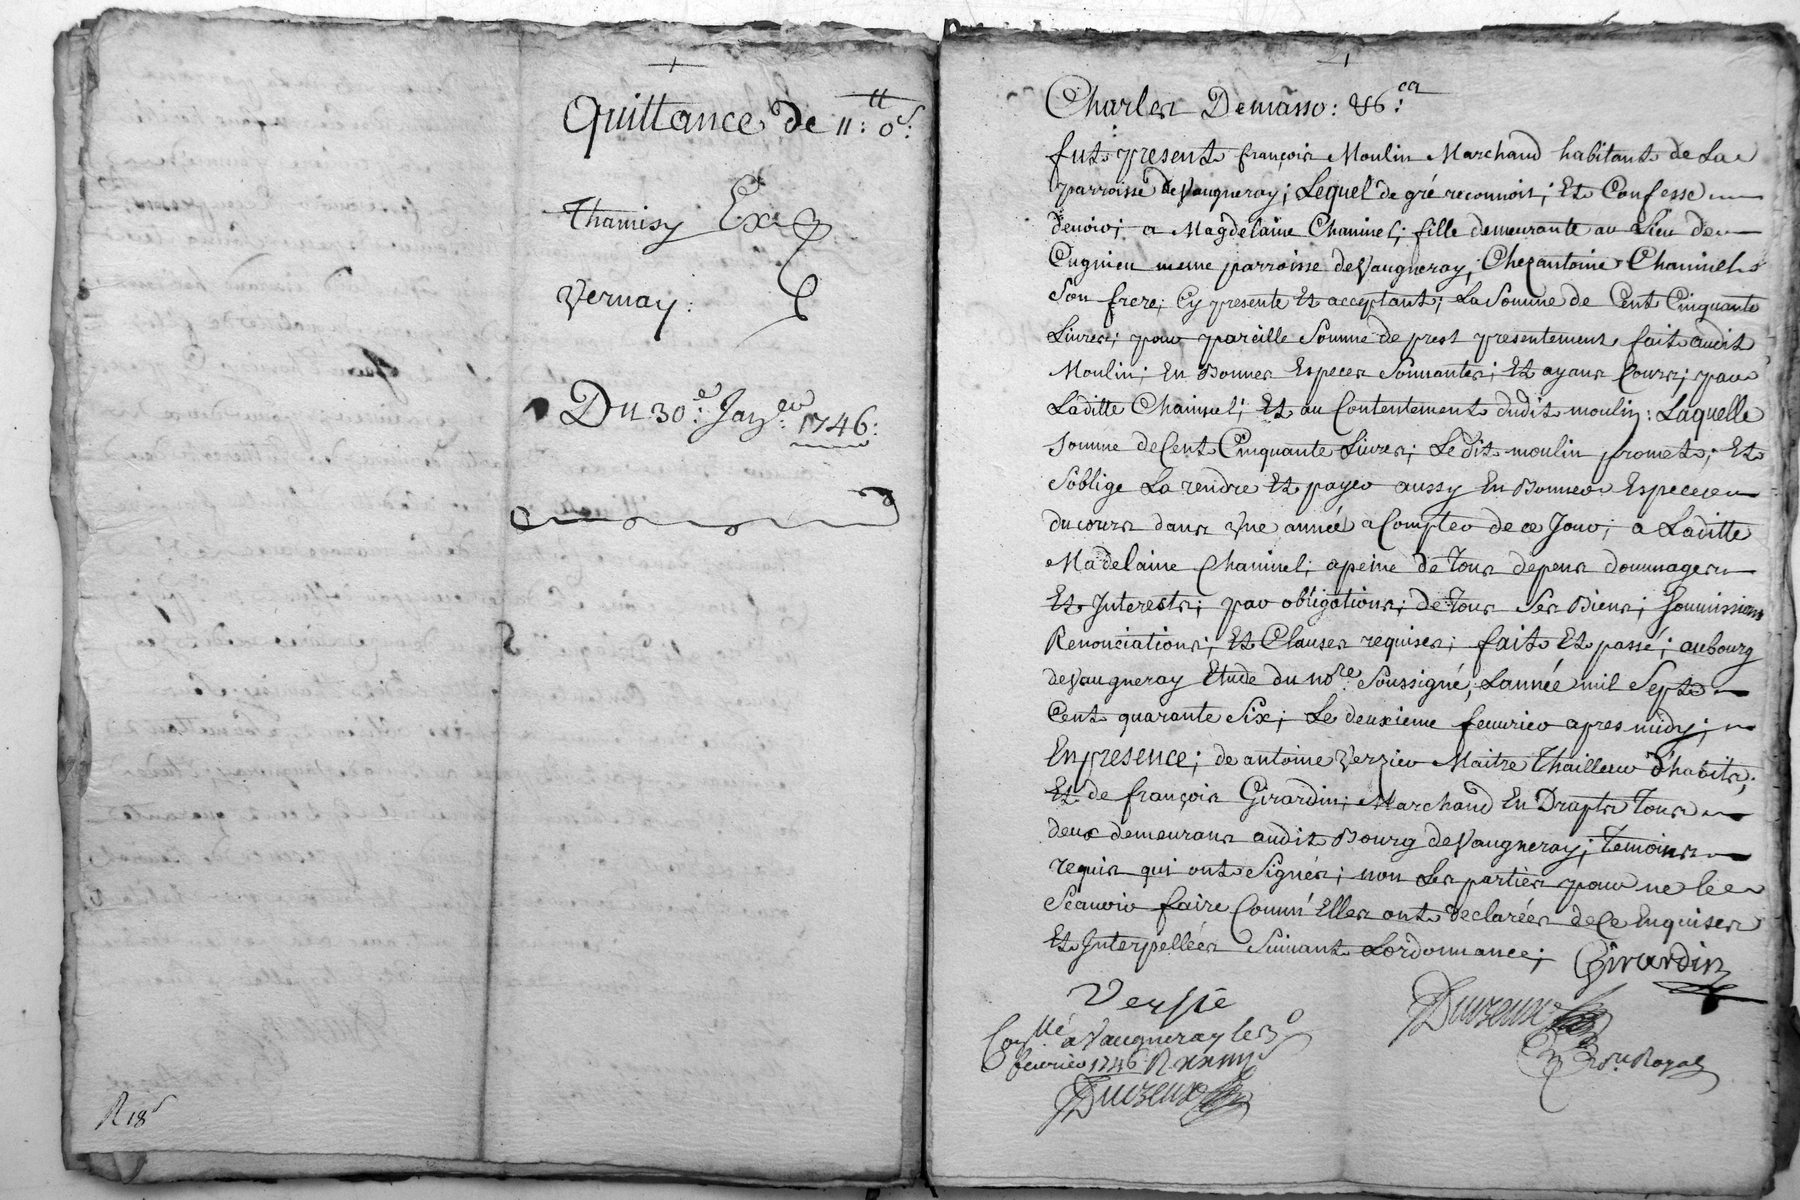 Quittance de 11:tt 0s:
Thamisy Ex
Vernay:
Du 30e: Janer: 1746:
R 18s
Charles Demasso:
fut present françois Moulin Marchand habitant de La
parroisse de Vaugneray; Lequel de gré reconnois; Et Confesse
devoir; a Magdelaine Chaminel; fille demeurante au Lieu de
Cugnieu meme parroisse de Vaugneray; Chez antoine Chaminel
Son frere; Cy presente Et acceptant; La Somme de Cent Cinquante
Livres; pour pareille Somme de prest presentement fait audit
Moulin; En Bonnes Especes Sonnantes; Et ayans Cours; par
Laditte Chaminel; Et au Contentement dudit moulin: Laquelle
somme de Cent Cinquante Livres; Ledit moulin promet; Et
Soblige La rendre Et payer aussy En Bonnes Especes
du cours dans Une année a Compter de ce Jour; a Laditte
Madelaine Chaminel; apeine de tous depens dommages
Et Interests; par obligations; de tous Ses Biens; Soumissions
Renonciations; Et Clauses requises; fait Et passé; au bourg
de Vaugneray Etude du nore. Soussigné; Lannée mil Sept
Cent quarante Six; Le deuxieme feuvrier apres midy;
En presence; de antoine Verzieu Maitre Thailleur d'habits;
Et de françois Girardin; Marchand En Drapts Tous
deux demeurans audit Bourg de Vaugneray; Temoins
requis qui ont Signés; non Les parties pour ne le
Scauoir faire Comm' Elles ont declarées de Ce Enquises
Et Interpellées Suivant Lordonnance; Girardin
Versié
Conllé a Vaugneray le 3e
feuvrier 1746 R
Royal